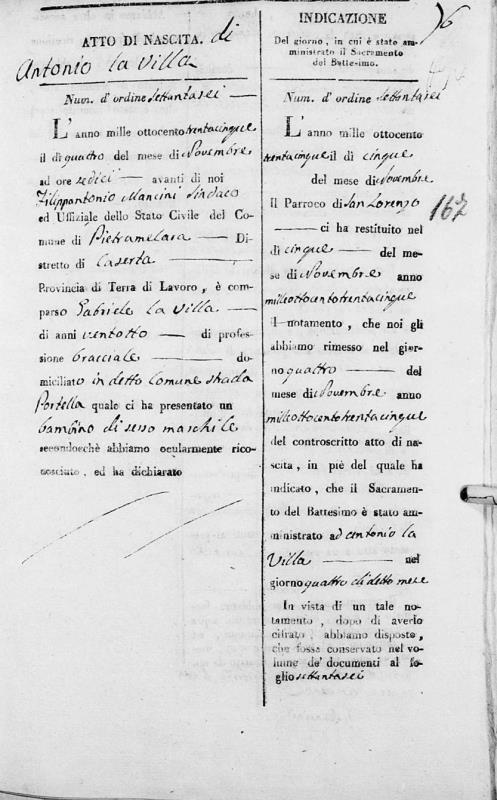 ATTO DI NASCITA. di
Antonio la Villa
Num. d' ordine settantasei
L' anno mille ottocento trentacinque
il dì quattro del mese di Novembre
ad ore sedici avanti di noi
Filippantonio Mancini Sindaco
ed Uffiziale dello Stato Civile del Co-
mune di Pietramelara Di-
stretto di Caserta
Provincia di Terra di Lavoro, è com-
parso Gabriele la Villa
di anni ventotto di profes-
sione bracciale do-
miciliano in detto Comune strada
Portella quale ci ha presentato un
bambino di sesso maschile
secondocchè abbiamo ocularmente rico-
nosciuto, ed ha dichiarato
INDICAZIONE
Del giorno, in cui è stato am-
ministrato il Sacramento
del Battesimo.
76
Num. d' ordine settantasei
L' anno mille ottocento
trentacinque il dì cinque
del mese di Novembre
Il Parroco di San Lorenzo
167
ci ha restituito nel
dì cinque del me-
se di Novembre anno
milleottocentotrentacinque
il notamento, che noi gli
abbiamo rimesso nel gior-
no quattro del
mese di Novembre anno
milleottocentotrentacinque
del controscritto atto di na-
scita, in piè del quale ha
indicato, che il Sacramen-
to del Battesimo è stato am-
ministrato ad Antonio la
Villa nel
giorno quattro di detto mese
In vista di un tale no-
tamento, dopo di averlo
cifrato, abbiamo disposto,
che fosse conservato nel vo-
lume de' documenti al fo-
glio settantasei